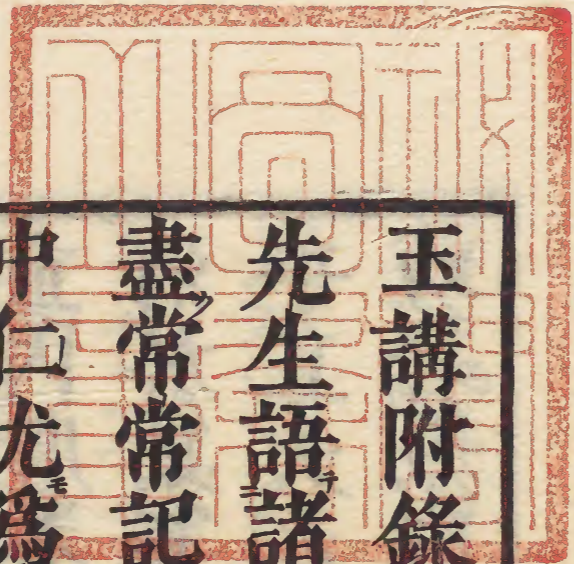 玉講附錄
先生語テ諸ニ
盡ク常常記
中仁尤モ爲